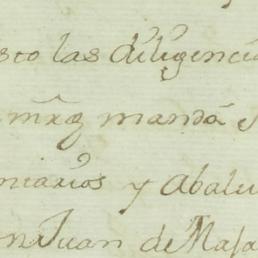 sto las diligenci
mrg mandã
niarios y Abalu
n Juan de Masa